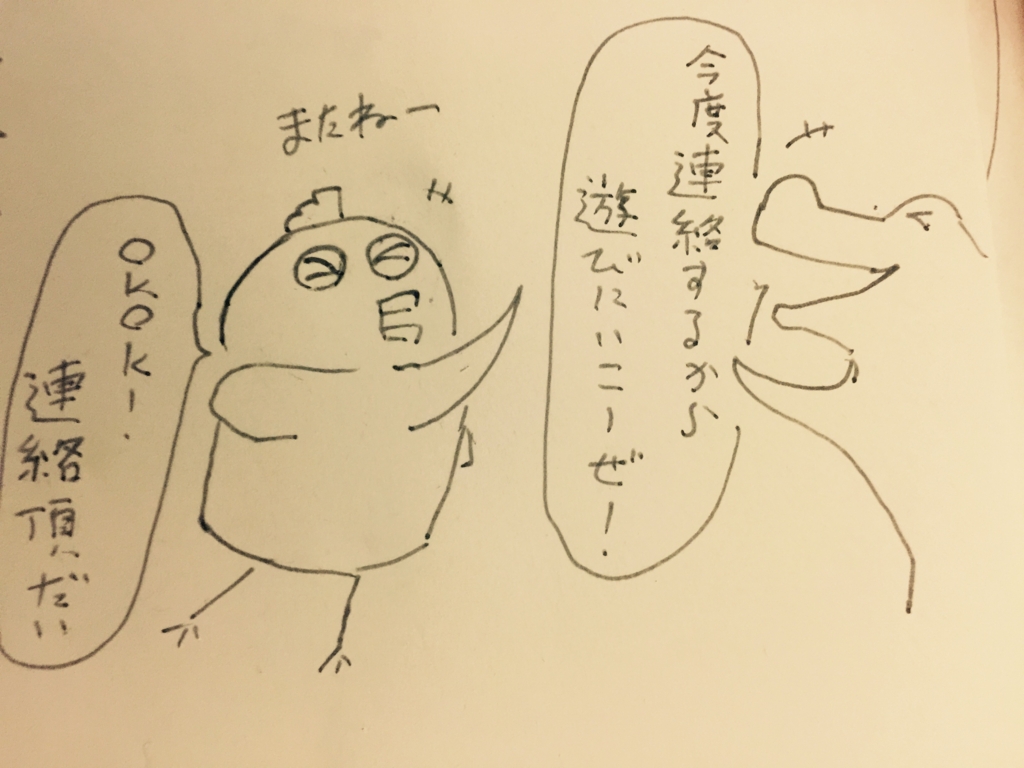 今度連絡するから
遊びにいこーぜー!
またねー
OKOKー.
連絡頂だい